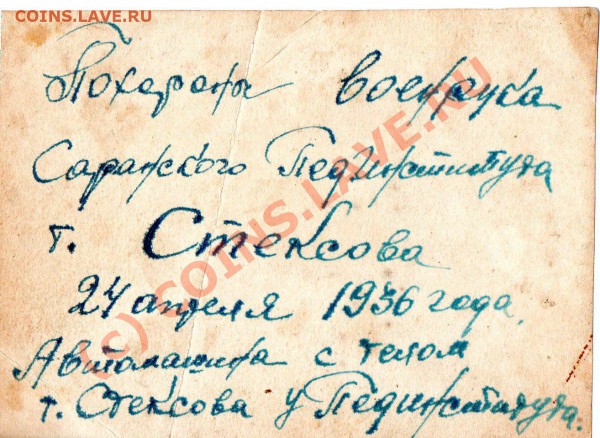 COINS.LAVE.RU
Похороны военрука
Саранского Пединститута
т. Стексова
24 апреля 1936 года.
Автомашина с телом
т. Стексова у Пединститута.
(c) COINS.LAVE.RU
COINS.LAVE.RU